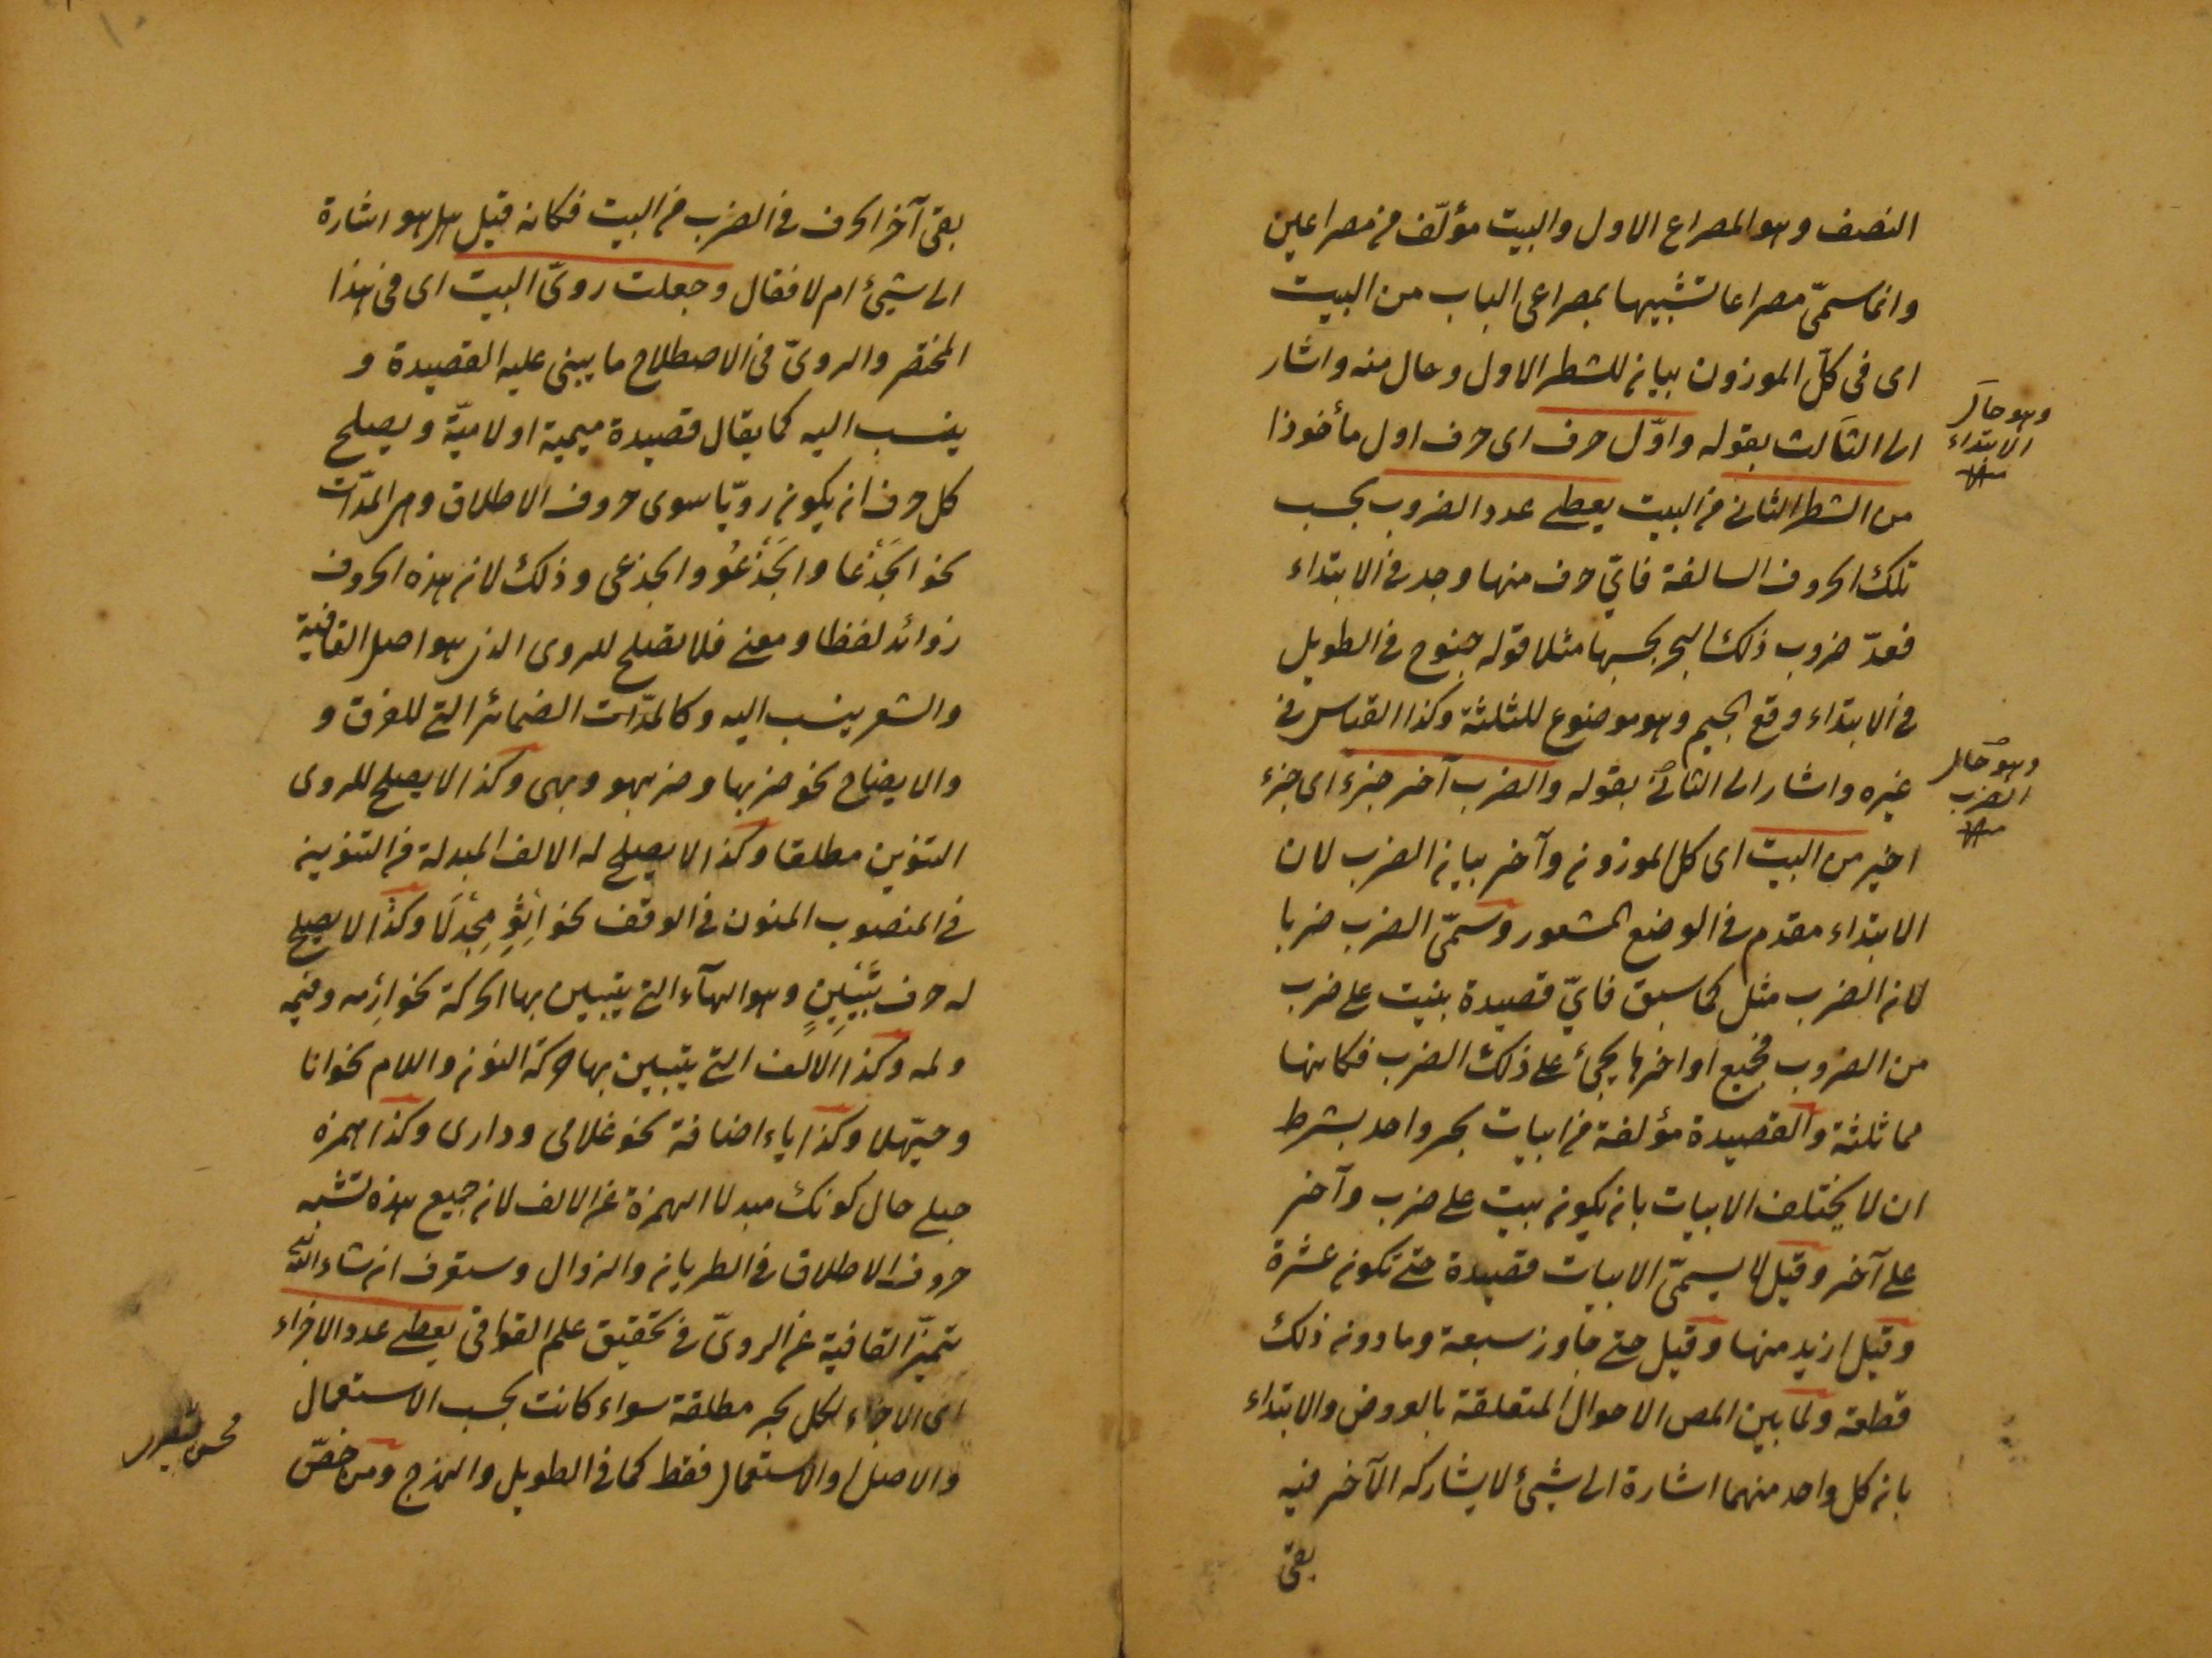 النصف وهو المصراع الاول والبيت مؤلّف من مصراعين
وانما سمّى مصراعا تشبيها بمصراعى الباب من البيت
اى فى كلّ الموزون بيان للشطر الاول وحال منه واشار
الى الثالث بقوله واوّل حرف اى حرف اول مأخوذا
من الشطر الثانى من البيت يعطى عدد الضروب بحسب
تلك الحروف السالفة فاىّ حرف منها وجد فى الابتداء
فعدّ ضروب ذلك البحر بحسبها مثلا قوله جنوح فى الطويل
فى الابتداء وقع الجيم وهو موضوع للثلثة وكذا القياس فى
غيره واشار الى الثانى بقوله والضرب آخر جزء اى جزء
اخير من البيت اى كل الموزون وآخر بيان الضرب لان
الابتداء مقدم فى الوضع المشعور وسمّى الضرب ضربا
لان الضرب مثل كما سبق فاىّ قصيدة بنيت على ضرب
من الضروب فجميع اواخرها يجئ على ذلك الضرب فكانها
مماثلثة والقصيدة مؤلفة من ابيات بحر واحد بشرط
ان لا يختلف الابيات بان يكون بيت على ضرب وآخر
على آخر وقيل لا يسمّى الابيات قصيدة حتى تكون عشرة
وقيل ازيد منها وقيل حتى جاوز سبعة وما دون ذلك
قطعة ولما بين المص الاحوال المتعلقة بالعروض والابتداء
بان كل واحد منهما اشارة الى شئ لا يشاركه الآخر فيه
بقى
وهو حال
الابتداء
وهو حال
الضرب
بقى آخر الحرف فى الضرب من البيت فكانه قيل هل هو اشارة
الى شئ ام لا فقال وجعلت روىّ البيت اى فى هذا
المختصر والروىّ فى الاصطلاح ما يبنى عليه القصيدة و
ينسب اليه كما يقال قصيدة ميمية او لاميّة ويصلح
كل حرف ان يكون رويّا سوى حروف الاطلاق وهى المدّات
نحو الجَذْعَا والجَذْعُو والجذعى وذلك لان هذه الحروف
زوائد لفظا ومعنى فلا تصلح للروى الذى هو اصل القافية
والشعر ينسب اليه وكالمدّات الضمائر التى للفرق و
والايضاح نحو ضربها وضربهو وبهى وكذا لا يصلح للروى
التنوين مطلقا وكذا لا يصلح له الالف المبدلة من التنوين
فى المنصوب المنون فى الوقف نحو مجدلا وكذا لا يصلح
له حرف تبيين وهو الهآء التى يتبين بها الحركة نحو ارمه وفيمه
ولمه وكذا الالف التى يتبين بها حركة النون واللام نحو انا
وحيّهلا وكذا ياء اضافة نحو غلامى ودارى وكذا همزة
حبلى حال كونك مبدلا الهمزة عن الالف لان جميع هذه تشبه
حروف الاطلاق فى الطريان والزوال وستعرف ان شاء الله
تميّز القافية عن الروىّ فى تحقيق علم القوافى يعطى عدد الاجزاء
اى الاجزاء لكل بحر مطلقة سواء كانت بحسب الاستعمال
والاصل او الاستعمال فقط كما فى الطويل والهزج ومن خصّ